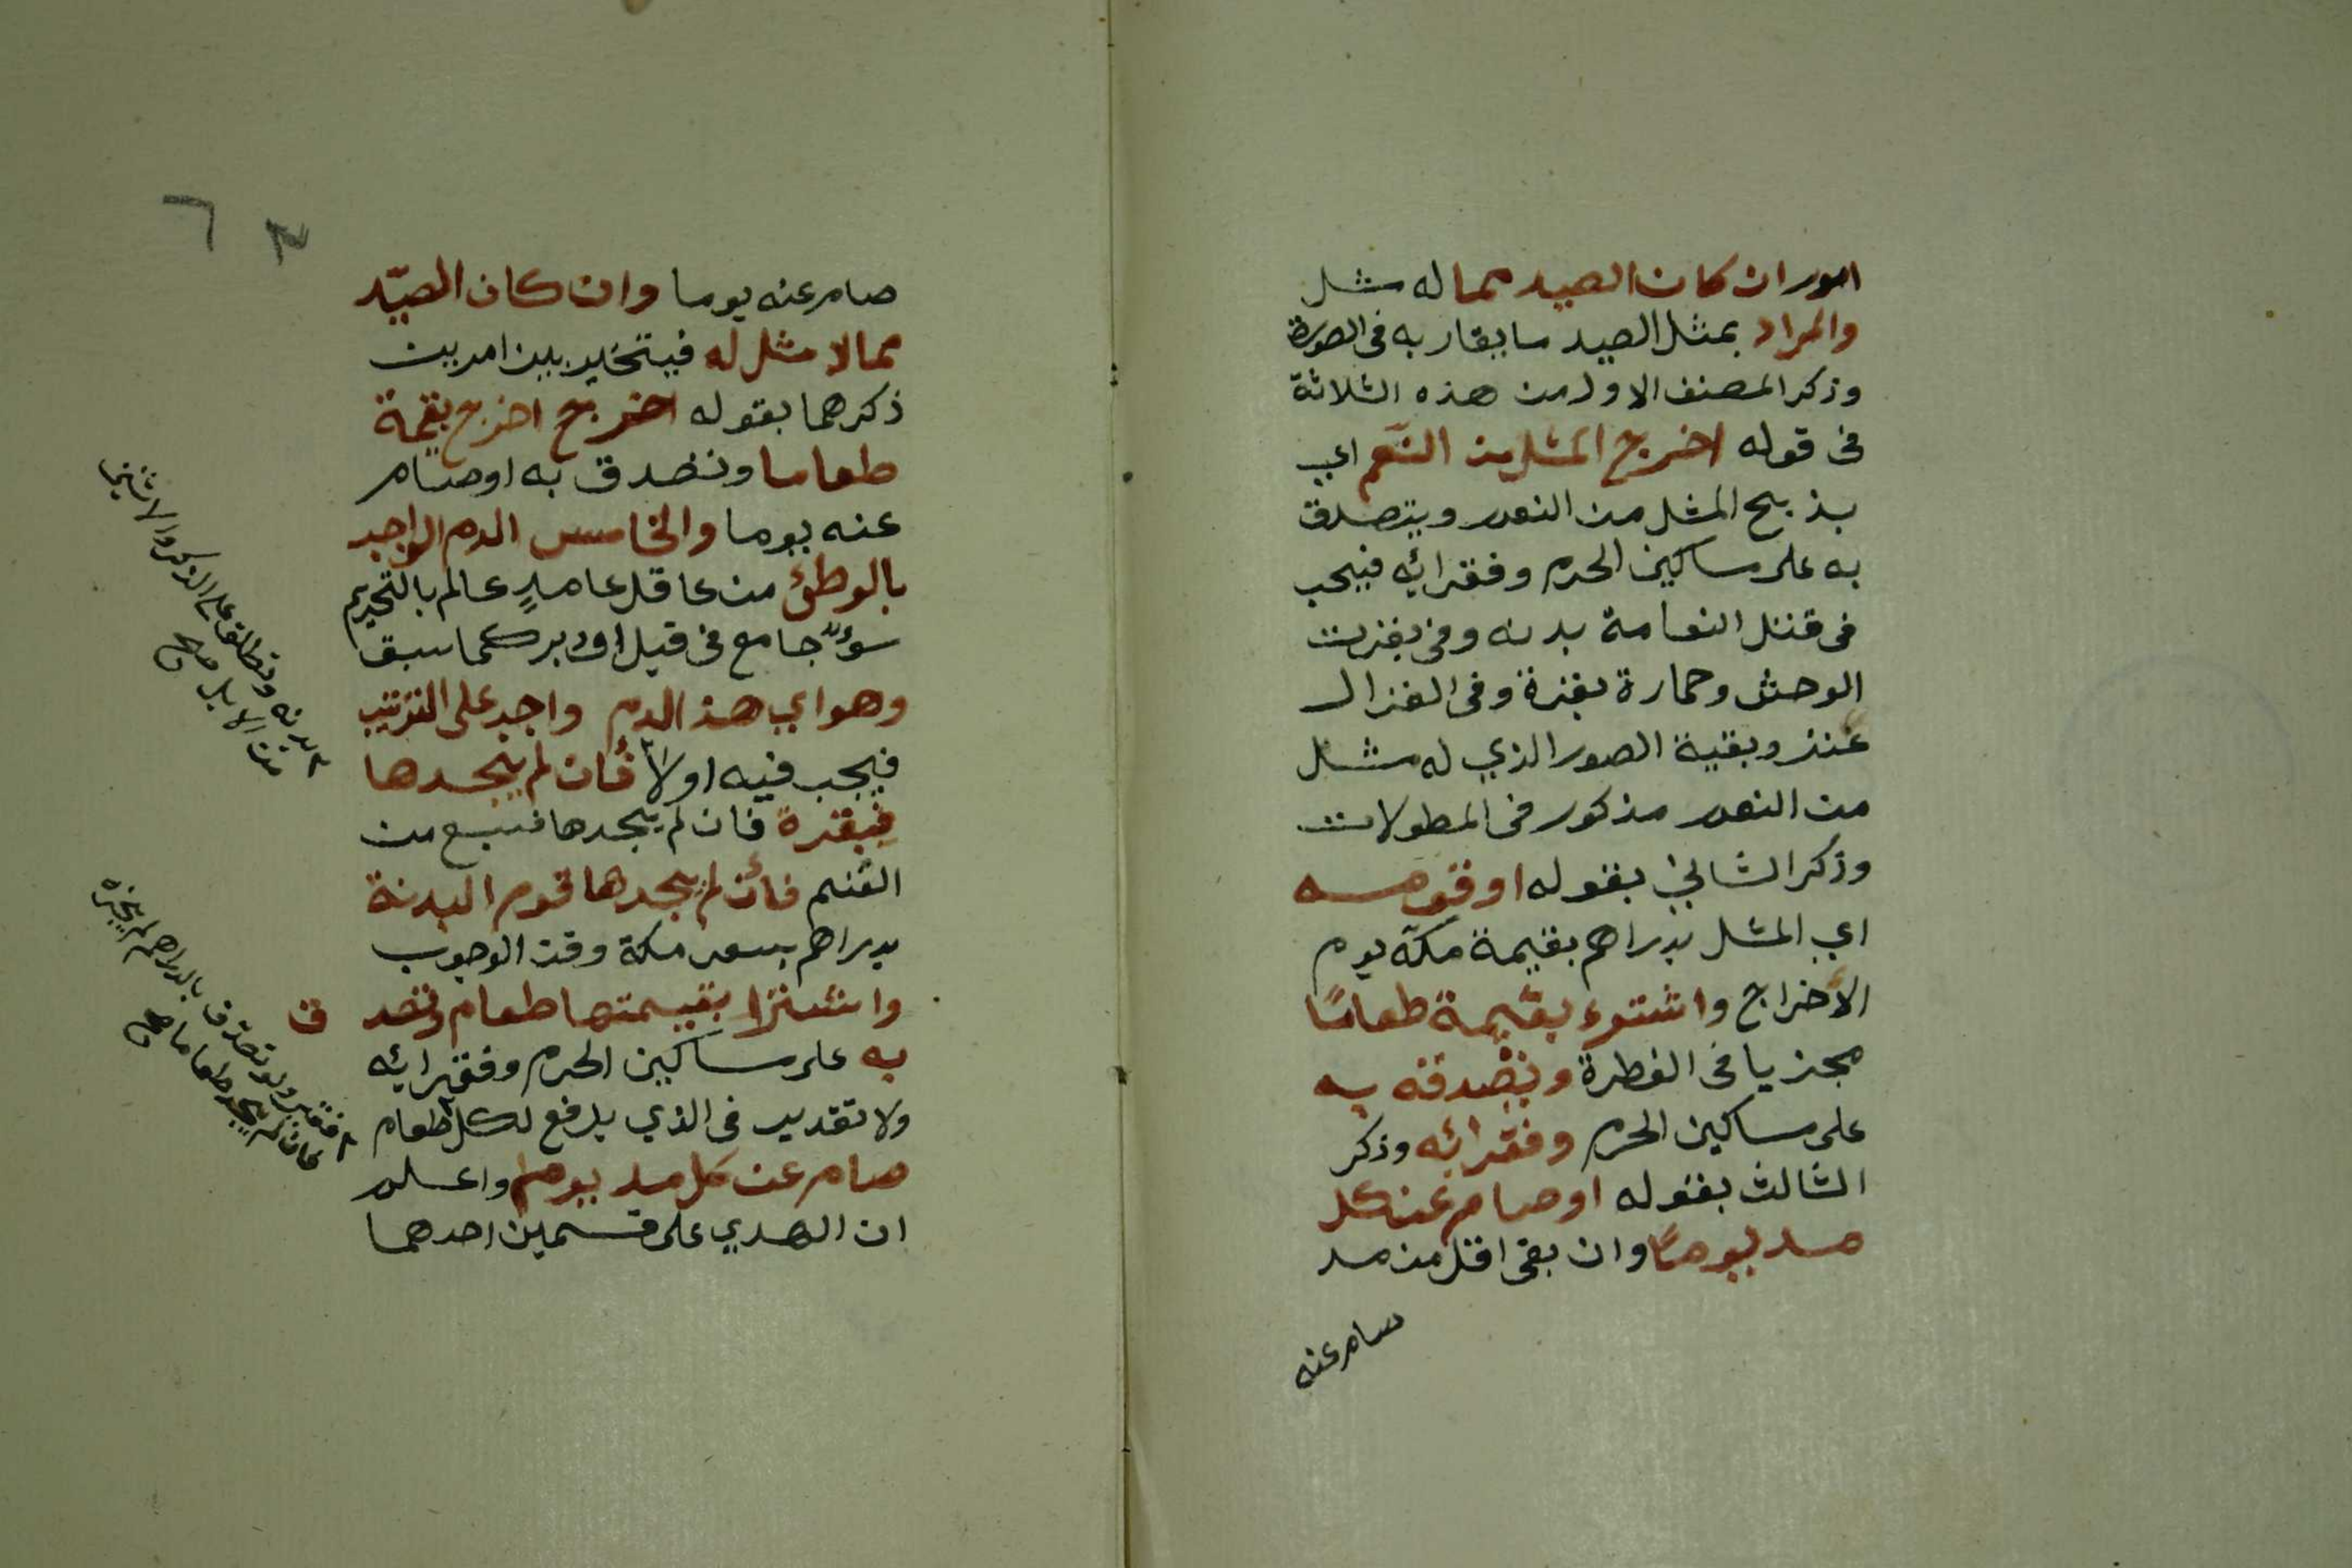 امور ان كان الصيد مما له مثل
والمراد بمثل الصيد ما يقاربه فى الصورة
وذكر المصنف الاول من هذه الثلاثة
فى قوله اخرج المثل من النعم اي
يذبح المثل من النعم ويتصدق
به على مساكين الحرم وفقرائه فيجب
فى قتل النعامة بدنه وفى بقرت
الوحش وحمارة بقرة وفى الغزال
عنز وبقية الصور الذي له مثل
من النعم مذكور فى المطولات
وذكر الثاني بقوله او قومه
اي المثل بدراهم بقيمة مكة يوم
الأخراج واشترى بقيمة طعامًا
مجزيا فى الفطرة وتصدقه به
على مساكين الحرم وفقرائه وذكر
الثالث بقوله او صام عن كل
مد يومًا وان بقى اقل من مد
صام عنه
صام عنه يوما وان كان الصيّد
مما لا مثل له فيتخير بين امرين
ذكرهما بقوله اخرج اخرج بقيمة
طعاما وتصدق به او صام
عنه يوما والخامس الدم الواجب
بالوطئ من عاقل عامدٍ عالم بالتحريم
سوٌآ جامع فى قبل او دبر كما سبق
وهو اي هذ الدم واجب على الترتيب
فيجب فيه اولا فأن لم يجدها
فبقرة فان لم يجدها فسبع من
الغنم فأن لم يجدها قوم البدنة
بدراهم بسعر مكة وقت الوجوب
واشترا بقيمتها طعام وتصد ق
به على مساكين الحرم وفقرائه
ولا تقدير فى الذي يدفع لكل طعام
صام عن كل مد يوما واعلم
ان الهدي على قسمين احدهما
بدنه وتطلق على الذكر والانثى
من الابل صح
فقير ولو تصدق بالدراهم لم يجزه
فان لم يجد طعاما صح